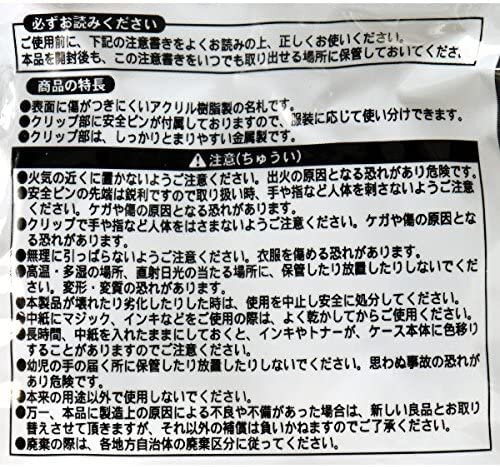 必ずお読みください
ご使用前に、下記の注意書きをよくお読みの上、正しくお使いください。
本品を開封後も、この注意書きをいつでも取り出せる場所に保管しておいてください。
商品の特長
●表面に傷がつきにくいアクリル樹脂製の名札です。
●クリップ部に安全ピンが付属しておりますので、服装に応じて使い分けできます。
●クリップ部は、しっかりとまりやすい金属製です。
⚠注意(ちゅうい)
●火気の近くに置かないようご注意ください。出火の原因となる恐れがあり危険です。
●安全ピンの先端は鋭利ですので取り扱い時、手や指など人体を刺さないようご注意ください。ケガや傷の原因となる恐れがあります。
●クリップで手や指など人体をはさまないようご注意ください。ケガや傷の原因となる恐れがあります。
●無理に引っぱらないようご注意ください。衣服を傷める恐れがあります。
●高温・多湿の場所、直射日光の当たる場所に、保管したり放置したりしないでください。変形・変質の恐れがあります。
●本製品が壊れたり劣化したりした時は、使用を中止し安全に処分してください。
●中紙にマジック、インキなどをご使用の際は、よく乾かしてからご使用ください。
●長時間、中紙を入れたままにしておくと、インキやトナーが、ケース本体に色移りすることがありますのでご注意ください。
●幼児の手の届く所に保管したり放置したりしないでください。思わぬ事故の恐れがあり危険です。
●本来の用途以外で使用しないでください。
●万一、本品に製造上の原因による不良や不備があった場合は、新しい良品とお取り替えさせて頂きますが、それ以外の補償は負いかねますのでご了承ください。
●廃棄の際は、各地方自治体の廃棄区分に従ってください。